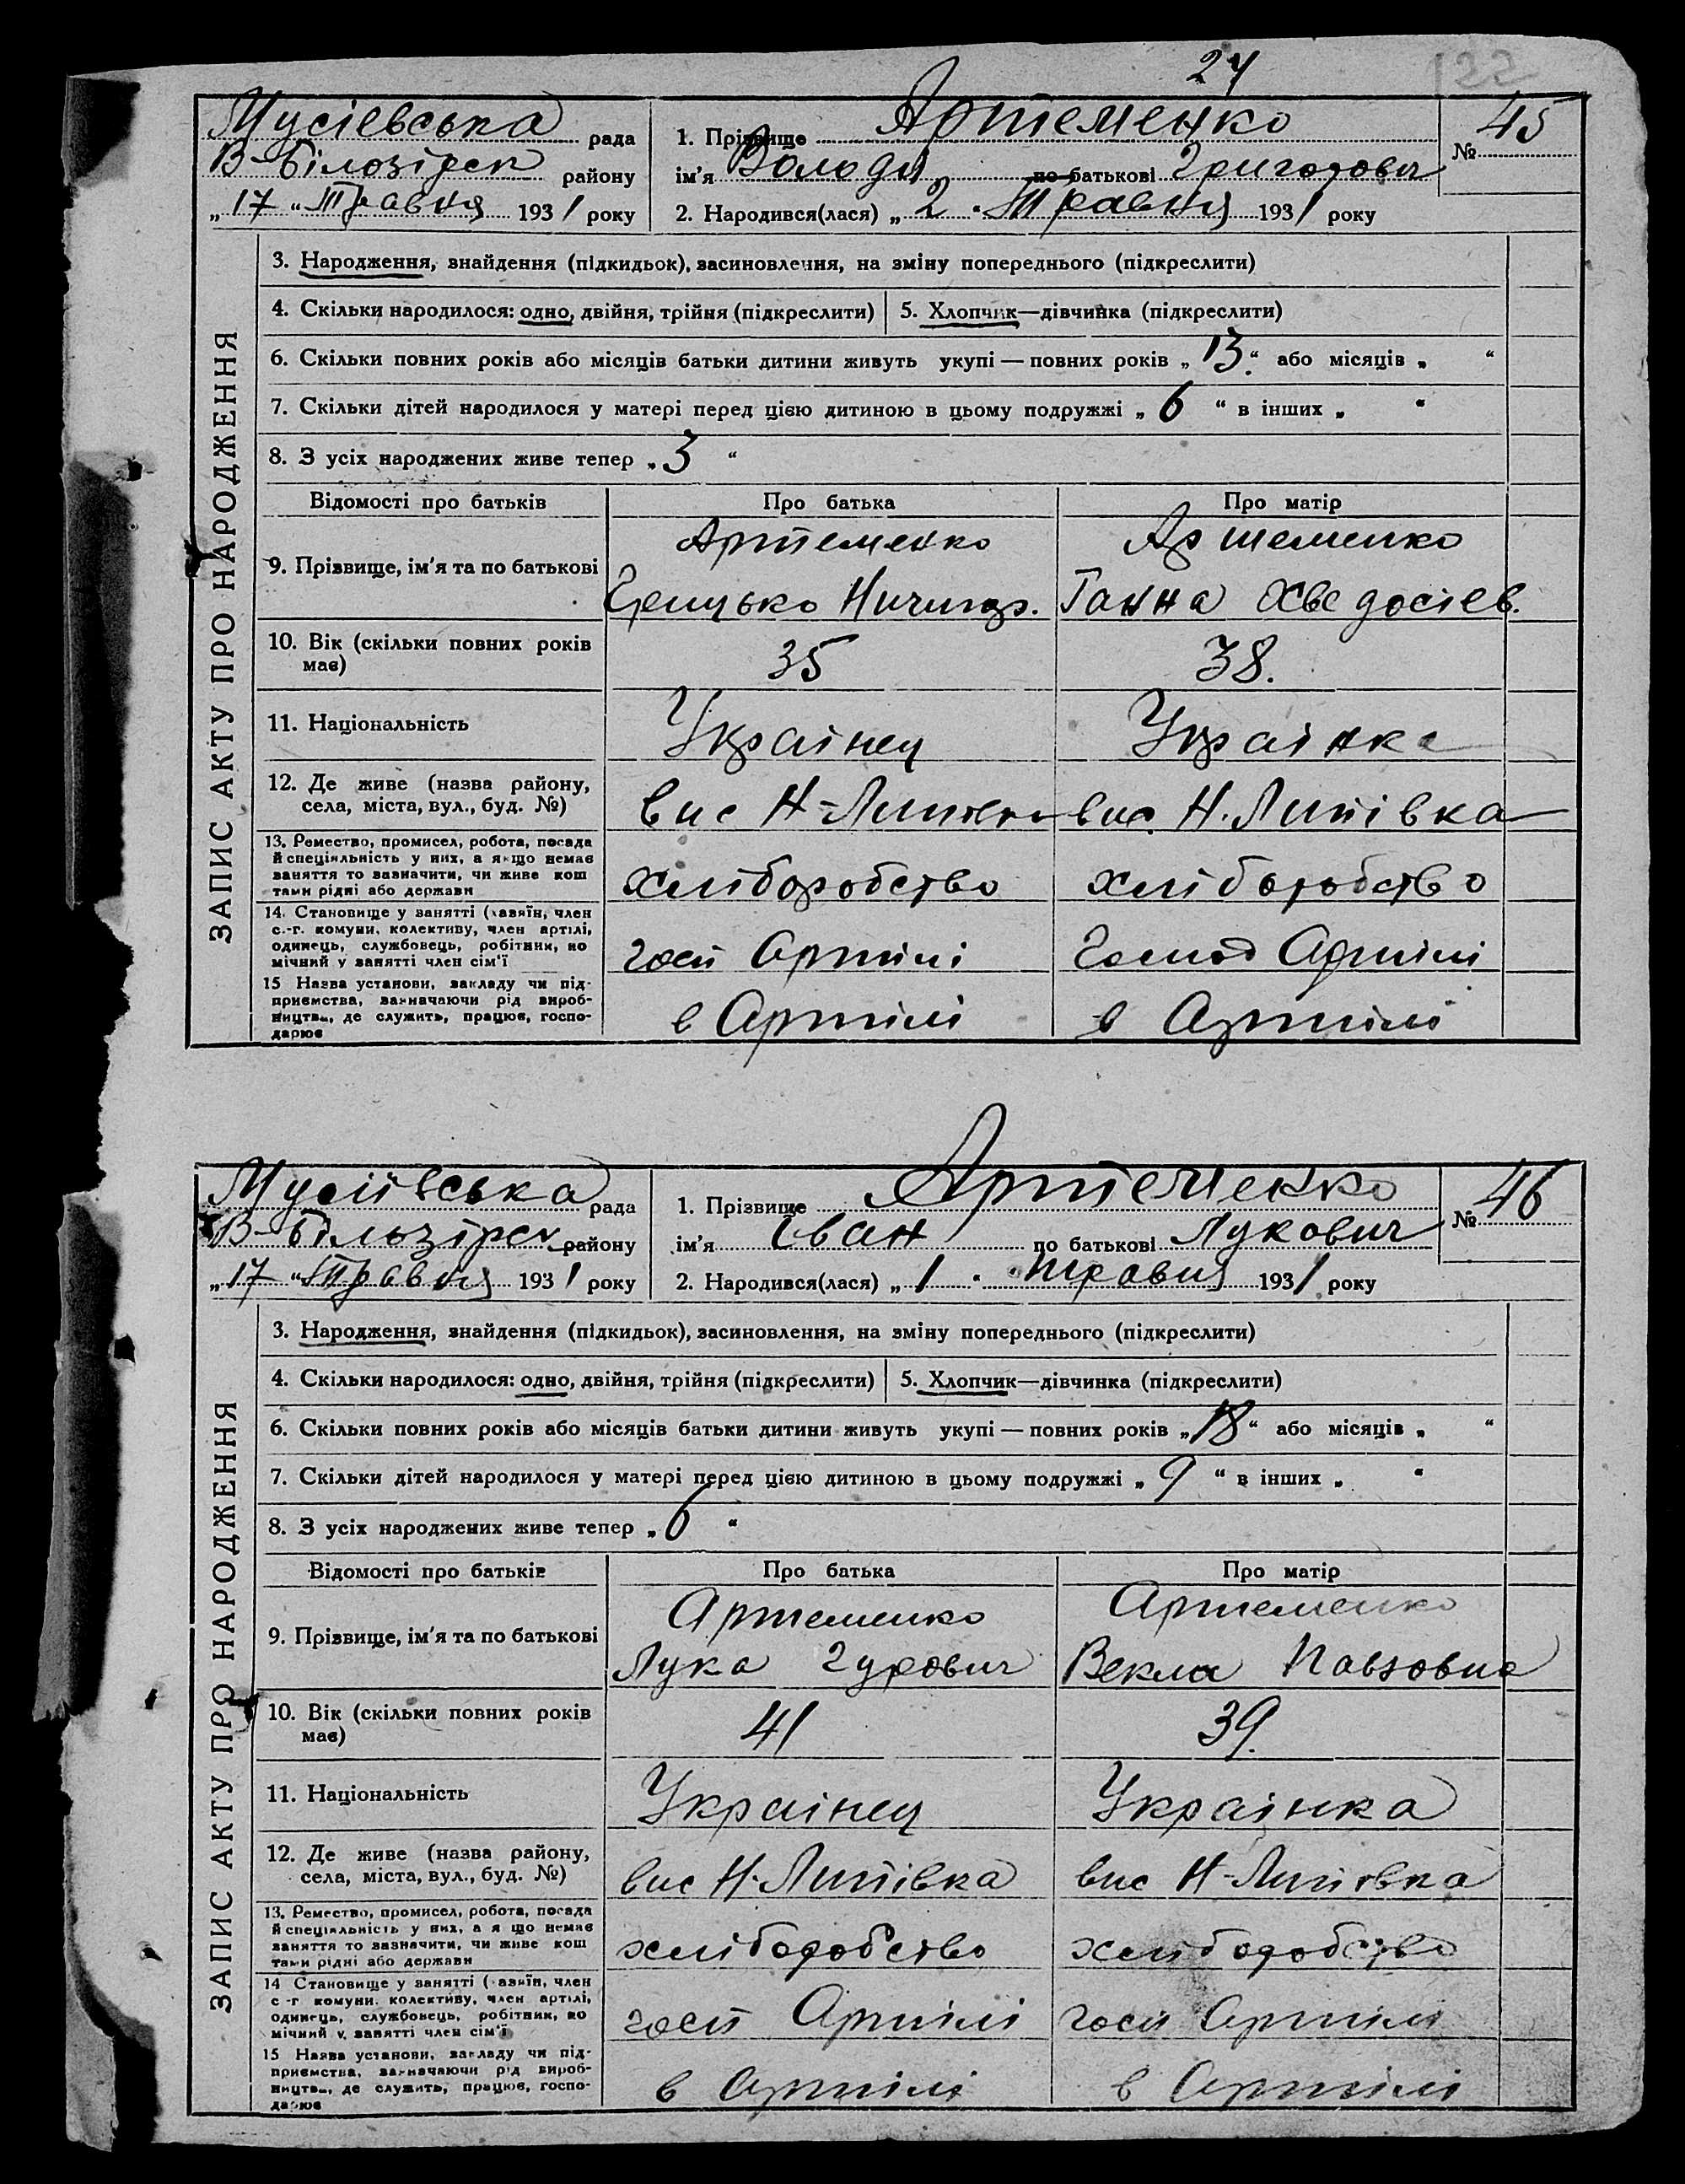 24
122
Мусіевська рада
В-Білозірск району
„17“ Травня 1931 року
1. Прізвище Артеменко
ім'я Володя по батькові Григорович
2. Народився(лася) „2“ Травня 1931 року
№ 45
ЗАПИС АКТУ ПРО НАРОДЖЕННЯ
3. Народження, знайдення (підкидьок), засиновлення, на зміну попереднього (підкреслити)
4. Скільки народилося: одно, двійня, трійня (підкреслити) 5. Хлопчик—дівчинка (підкреслити)
6. Скільки повних років або місяців батьки дитини живуть укупі — повних років „13“ або місяців „ “
7. Скільки дітей народилося у матері перед цією дитиною в цьому подружжі „6“ в інших „ “
8. З усіх народжених живе тепер „3“
Відомості про батьків Про батька Про матір
9. Прізвище, ім'я та по батькові
Артеменко Артеменко
Грицько Ничипор. Ганна Хведосіев.
10. Вік (скільки повних років має) 35 38.
11. Національність Украінец Украінка
12. Де живе (назва району, села, міста, вул., буд. №) вис Н-Липівка вис. Н. Липівка
13. Ремество, промисел, робота, посада й спеціяльність у них, а якщо немає заняття то зазначити, чи живе кош тами рідні або держави хліборобство хліборобство
14. Становище у занятті (хазяїн, член с.-г. комуни, колективу, член артілі, одинець, службовець, робітник, по мічний у занятті член сім'ї госп Артілі Господ Артілі
15 Назва установи, закладу чи підприємства, зазначаючи рід виробництва, де служить, працює, господарює в Артілі в Артілі
Мусіівська рада
В-Більзірск району
„17“ Травня 1931 року
1. Прізвище Артеменко
ім'я Іван по батькові Лукович
2. Народився(лася) „1“ травня 1931 року
№ 46
ЗАПИС АКТУ ПРО НАРОДЖЕННЯ
3. Народження, знайдення (підкидьок), засиновлення, на зміну попереднього (підкреслити)
4. Скільки народилося: одно, двійня, трійня (підкреслити) 5. Хлопчик—дівчинка (підкреслити)
6. Скільки повних років або місяців батьки дитини живуть укупі — повних років „18“ або місяців „ “
7. Скільки дітей народилося у матері перед цією дитиною в цьому подружжі „9“ в інших „ “
8. З усіх народжених живе тепер „6“
Відомості про батьків Про батька Про матір
9. Прізвище, ім'я та по батькові
Артеменко Артеменко
Лука Гурович Векла Павловна
10. Вік (скільки повних років має) 41 39.
11. Національність Украінец Украінка
12. Де живе (назва району, села, міста, вул., буд. №) вис Н-Липівка вис Н-Липівка
13. Ремество, промисел, робота, посада й спеціяльність у них, а я що немає заняття то зазначити, чи живе кош тами рідні або держави хліборобство хліборобство
14 Становище у занятті (хазяїн, член с-г комуни, колективу, член артілі, одинець, службовець, робітник, по мічний у занятті член сім'ї госп Артілі госп Артілі
15 Назва установи, закладу чи підприємства, зазначаючи рід виробництва, де служить, працює, господарює в Артілі в Артілі